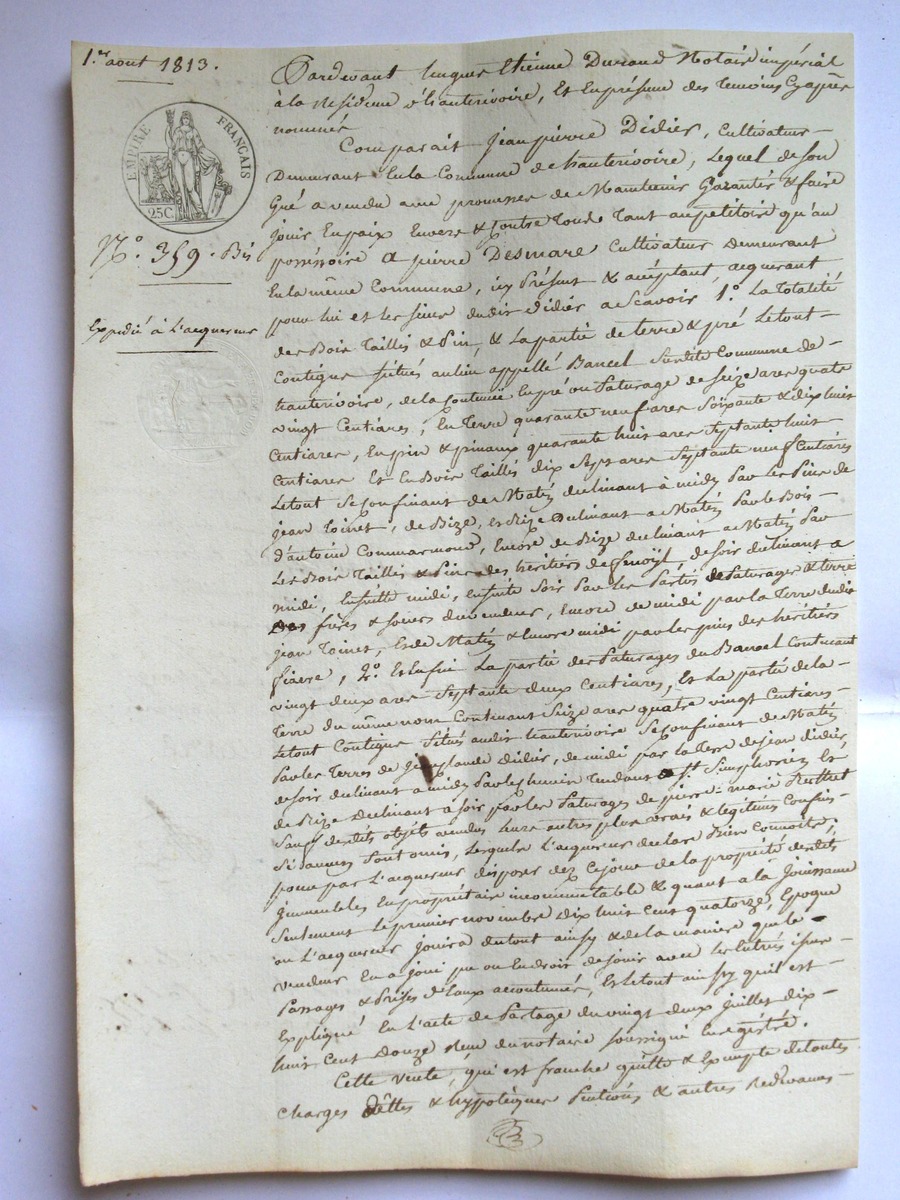 1.er aout 1813.
EMPIRE FRANÇAIS
25C.
N.º 359. Bis
Expedié à L'acquereur
Pardevant hugues Etienne Durand Notaire impérial
à la Residence d'hauterivoire, Et En présence des Temoins Cyaprès
nommés
Comparait Jean pierre Didier, Cultivateur
Demeurant En la Commune de hauterivoire, Lequel de Son
Gré a vendu avec promesse de Maintenir Garantir & faire
jouir En paix Envers & Contre Tous Tant au petitoire qu'au
possessoire A pierre Desmare Cultivateur Demeurant
En la même Commune, icy Présent & acceptant, acquerant
pour lui et les siens dudit Didier a Scavoir 1.º La Totalité
des Bois Taillés & Pin, & La partie de terre & pré Le tout
Contigus situés au lieu appellé Bancel Susdite Commune de
hauterivoire, de la Contenue En pré ou Paturage de Seize ares quatre
vingt Centiares, En Terre quarante neuf ares Soixante & dix huit
Centiares, En pin & pinaux quarante huit ares Septante huit
Centiares Et En Bois Taillés dix Sept ares Septante neuf Centiares
Le tout Se Confinant de Matin declinant à midy Par les Pins de
jean Toinet, de Bize, et Bize Declinant a Matin Par le Bois
d'antoine Commarmond, Encore de Bize declinant a Matin Par
Les Bois Taillés & Pins des héritiers de de Soir declinant a
midi, Ensuitte midi, Ensuite Soir Par les Partis de Paturages & terre
des frères & soeurs du vendeur, Encore de midi par la Terre dudit
jean Toinet, Et de Matin & Encore midi par les pins des héritiers
fiavre, 2.º Et Enfin La partie des Paturages du Bancel Contenant
vingt deux ares Septante deux Centiares, Et La partie de la
Terre du même nom Contenant Seize ares quatre vingt Centiares
Le tout Contigus Situés audit hauterivoire Se Confinant de Matin
Par les Terres de Didier, de midi par La Terre de jean didier,
de Soir declinant a midy Par le chemin Tendant a St. Simphorien Et
de Bize Declinant a Soir par les Paturages de pierre-marie
Sauf desdits objets vendus leurs autres plus vrais & legitimes Confins
Si aucuns Sont omis, Lesquels L'acquereur declare Bien Connoitre,
pour par L'acquereur disposer dez Cejour de la propriété desdits
Immeubles En propriétaire incommutable & quant a la Jouissance
Seulement Le premier novembre Dix huit Cent quatorze, Epoque
ou L'acquereur Jouira du tout ainsy & de la maniere que le
vendeur En a joui pu ou En droit de jouir avec les Entrés issues
Passages & Prises d'Eaux accoutumés, Et Le tout ainsy quil est
Expliqué En L'acte de Partage du vingt deux Juillet dix
huit Cent Douze Reçu du notaire Soussigné Enregistré.
Cette vente, qui est franche quitte & Exempte de toutes
charges dettes & hypoteques Pentions & autres Redevances